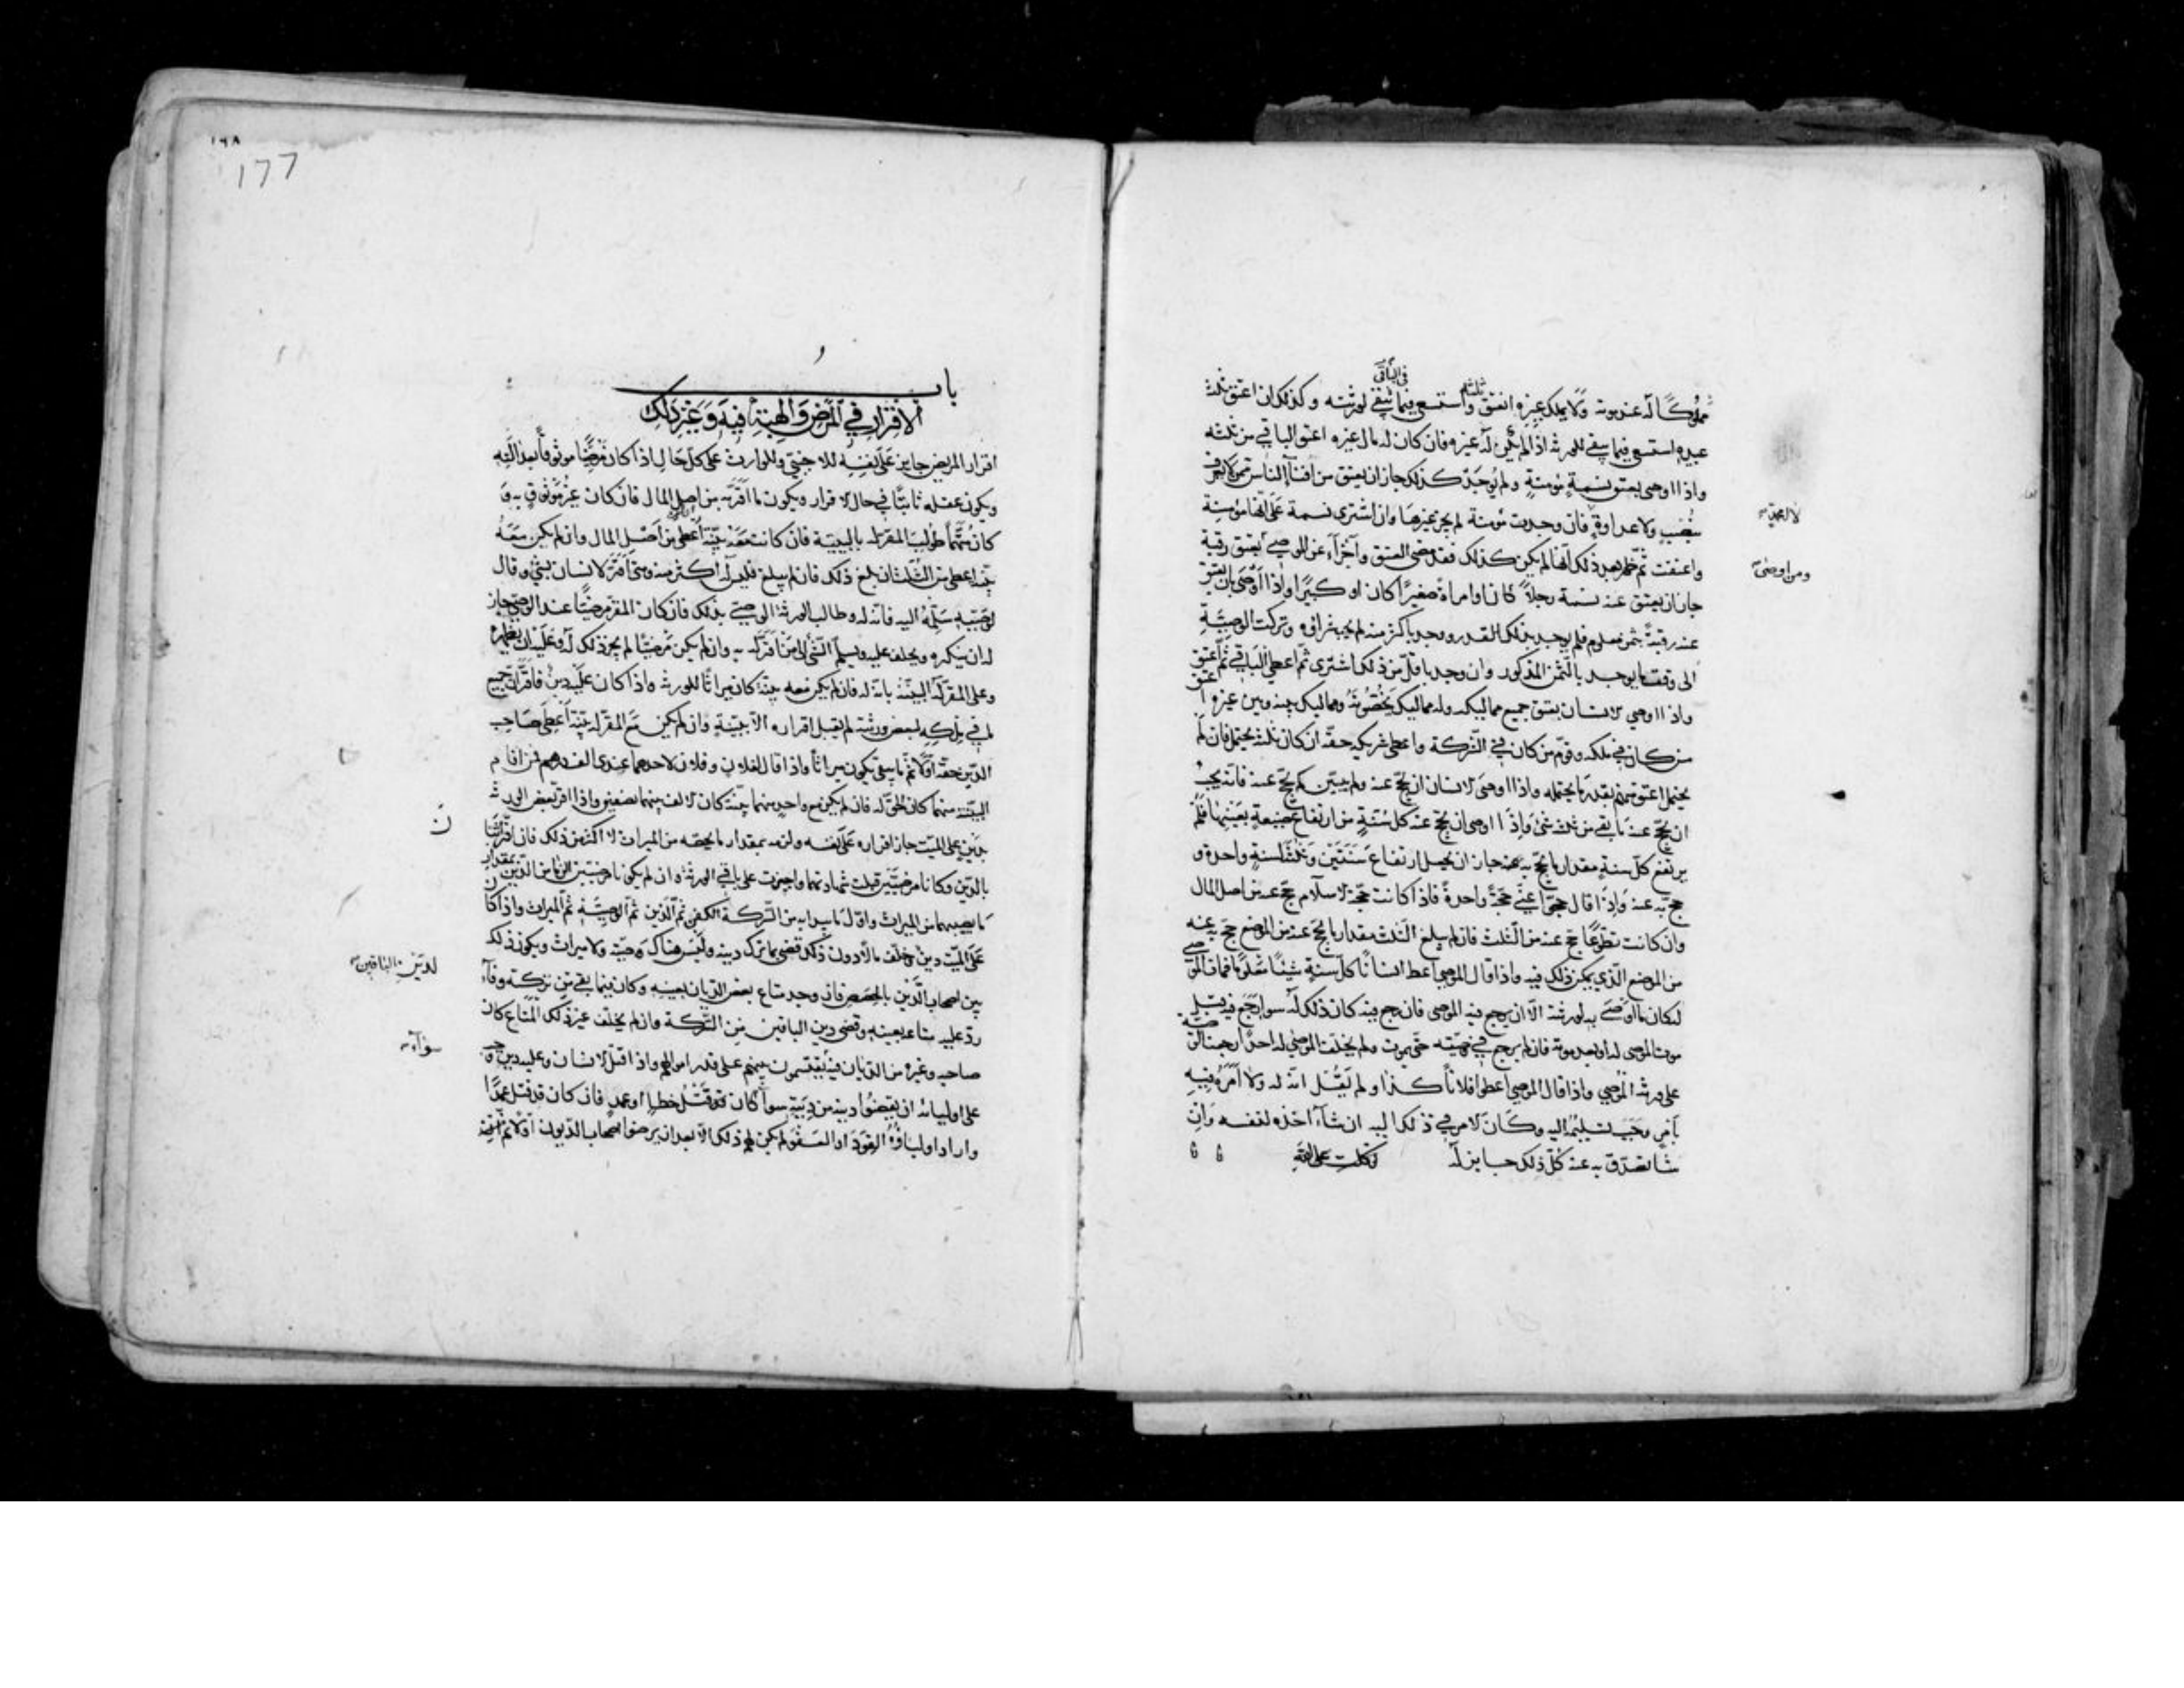 في الباقي
مملوكًا له عند موته ولا يملك غيره انعتق ثلثه واستسعى فيما بقي لورثته وكذلك ان اعتق ثلث
عبيده استسعى فيما بقي للورثة اذا لم يكن له غيره فان كان له مال غيره اعتق الباقي من ثلثه
واذا اوصى بعتق نسمةٍ مؤمنةٍ ولم يوجد كذلك جاز ان يعتق من افناء الناس ممن لا يعرف
بنصب ولا عداوةٍ فان وجدت مؤمنة لم يجز غيرها وان اشترى نسمة على انها مؤمنة
واعتقت ثم ظهر بعد ذلك انها لم يكن كذلك فقد مضى العتق واجزاء عن الوصي بعتق رقبة
جاز ان يعتق عنه نسمة رجلاً كان او امراة صغيرًا كان او كبيرًا واذا اوصى بان يعتق
عنه رقبةً بثمن معلوم فلم يوجد بذلك القدر ووجد باكثر منه لم يجب شراؤه وتركت الوصية
الى وقت ما يوجد بالثمن المذكور وان وجد باقل من ذلك اشترى ثم اعطى الباقي ثم اعتق
واذا اوصى الانسان بعتق جميع مماليكه وله مماليك يخصونه ومماليك بينه وبين غيره اعتق
من كان في ملكه وقوم من كان في الشركة واعطى شريكه حقه ان كان ثلثه يحتمل فان لم
يحتمل اعتق منهم بقدر ما يحتمله واذا اوصى الانسان ان يحج عنه ولم يبين كم يحج عنه فانه يجب
ان يحج عنه ما بقي من ثلثه شئ واذا اوصى ان يحج عنه كل سنةٍ من ارتفاع ضيعة بعينها فلم
يرتفع كل سنةٍ مقدار ما يحج به عنه جاز ان يجعل ارتفاع سنتين وثلثة لسنةٍ واحدة و
حج به عنه واذا قال حجوا عني حجةً واحدةً فاذا كانت حجة الاسلام حج عنه من اصل المال
وان كانت تطوعًا حج عنه من الثلث فان لم يبلغ الثلث مقدار ما يحج عنه من الموضع حج به عنه
من الموضع الذي يمكن ذلك فيه واذا قال الموصي اعط انسانًا كل سنةٍ شيئًا معلومًا فمات الموصى
له كان ما اوصى به لورثته الا ان يرجع فيه الموصى فان رجع فيه كان ذلك له سوا رجع فيه قبل
موت الموصى له او بعد موته فان لم يرجع في وصيته حتى يموت ولم يخلف الموصى له احدًا رجعت الوصية
على ورثة الموصي واذا قال الموصي اعطوا فلانًا كذا ولم يقل انه له ولا امره فيه
بامرٍ وجب تسليمه اليه وكان الامر في ذلك اليه ان شاء اخذه لنفسه وان
شا تصدق به عنه كل ذلك جايز له
ومن اوصى
١٦٨
177
باب
الاقرار في المرض والهبة فيه وغير ذلك
اقرار المريض جايز على نفسه للاجنبي وللوارث على كل حال اذا كان مرضيًا موثوقًا بعدالته
ويكون عقله ثابتًا في حال الاقرار ويكون ما اقر به من اصل المال فان كان غير موثوقٍ به و
كان متهمًا طولب المقر له بالبينة فان كانت معه بينة اعطي من اصل المال وان لم يكن معه
بينة اعطي من الثلث ان بلغ ذلك فان لم يبلغ فليس له اكثر منه ومتى اقر لانسان بشئ وقال
لوصيه سلمه اليه فانه له وطالب الورثة الوصي بذلك فان كان المقر مرضيًا عند الوصي جاز
له ان ينكره ويحلف عليه ويسلم الشئ الى من اقر له به وان لم يكن مرضيًا لم يجز ذلك له وعليه ان يظهره
وعلى المقر له البينة بانه له فان لم يكن معه بينة كان ميراثًا للورثة واذا كان عليه دين فاقر ان جميع
ما في ملكه لبعض ورثته لم يقبل اقراره الا ببينةٍ وان لم يكن مع المقر له بينة اعطي صاحب
الدين حقه اولًا ثم ما يبقى يكون ميراثًا واذا قال لفلان وفلان لاحدهما عندي الف درهم فمن اقام
البينة منهما كان الحق له فان لم يكن مع واحدٍ منهما بينة كان الالف بينهما نصفين واذا اقر بعض الورثة
بدينٍ على الميت جاز اقراره على نفسه ولزمه بمقدار ما يخصه من الميراث لا اكثر من ذلك فان اقر اثنان
بالدين وكانا مرضيين قبلت شهادتهما واجيزت على باقي الورثة وان لم يكونا مرضيين الزما من الدين بمقدار
ما يصيبهما من الميراث واول ما يبدا به من التركة الكفن ثم الدين ثم الوصية ثم الميراث واذا كان
على الميت دين وخلف مالًا دون ذلك قضى بما ترك دينه وليس هناك وصية ولا ميراث ويكون ذلك
بين اصحاب الدين بالحصص فان وجد متاع بعض الديان بعينه وكان فيما بقي من تركته وفاء
رد عليه متاعه بعينه وقضى دين الباقين من التركة وان لم يخلف غير ذلك المتاع كان
صاحبه وغيره من الديان فيه يقتسمون بينهم على قدر اموالهم واذا قتل الانسان وعليه دين وجب
على اوليائه ان يقضوا دينه من ديته سوآء كان قد قتل خطاءٍ او عمدٍ فان كان قد قتل عمدًا
واراد اولياؤه القود او العفو لم يكن لهم ذلك الا بعد ان يرضوا اصحاب الديون اولا ثم
ن
سوآء